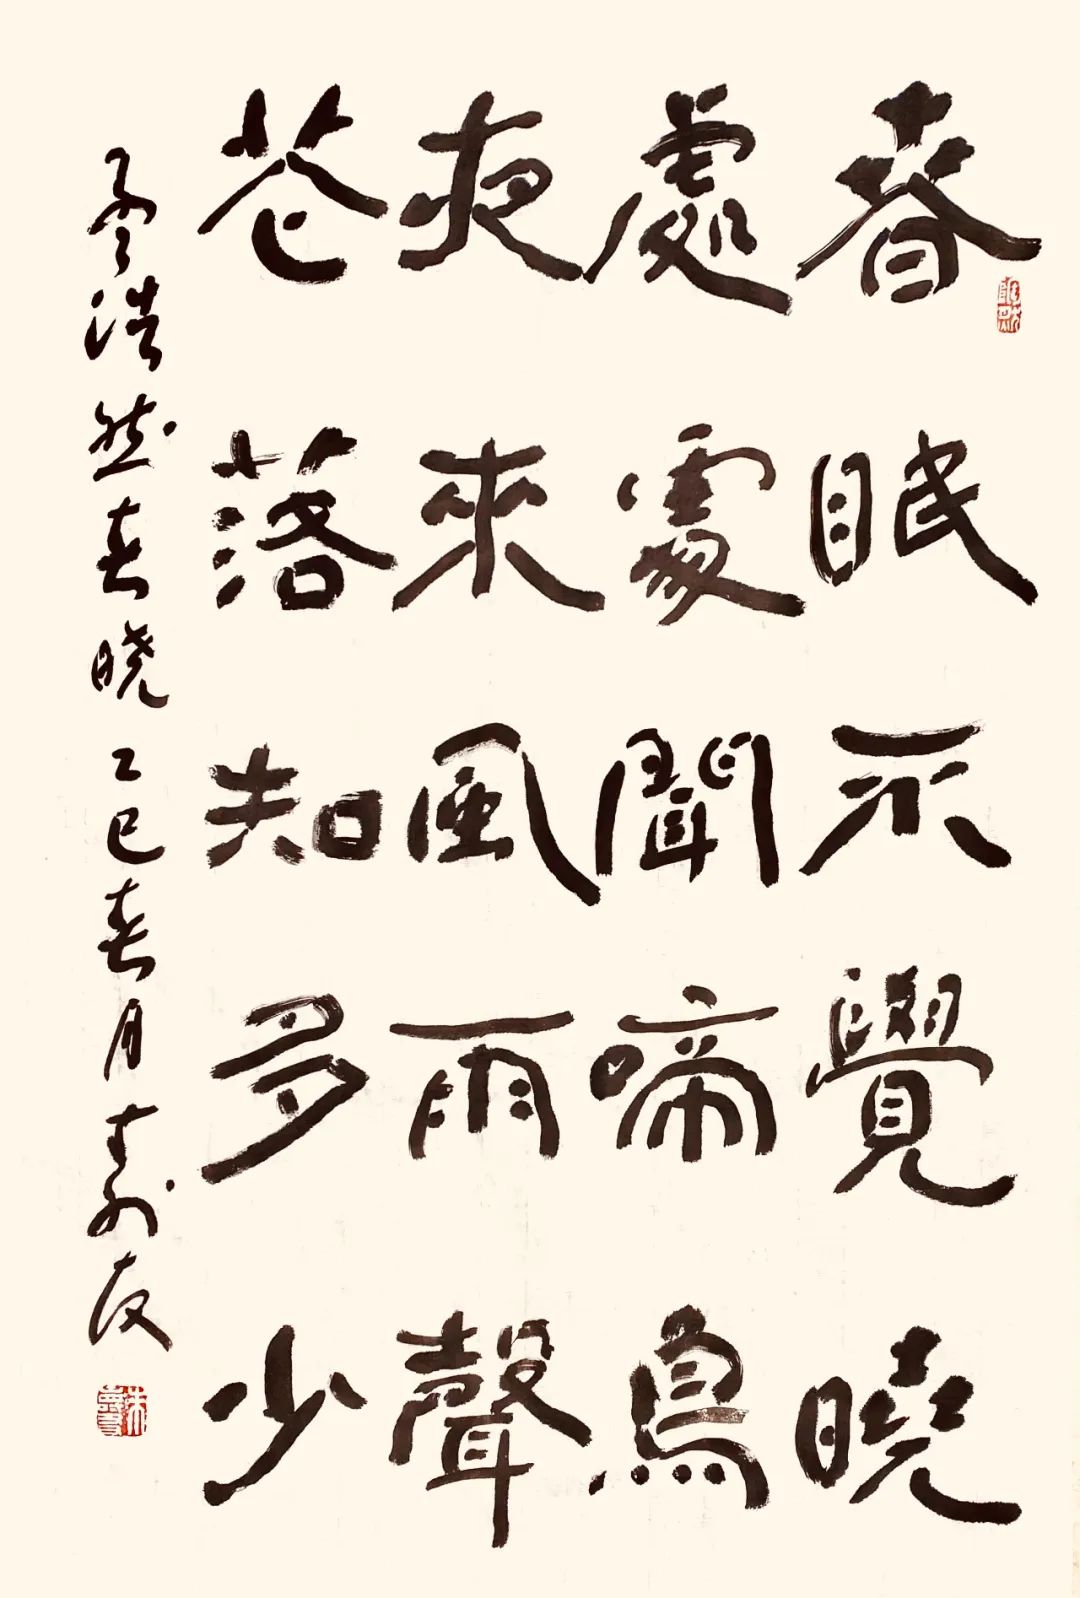 春眠不覺曉
處處聞啼鳥
夜來風雨聲
花落知多少
孟浩然春曉乙巳春月壽友